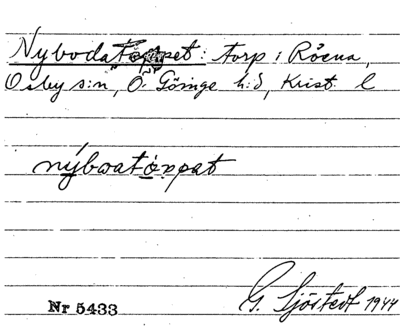 Nybodatorpet: torp i Råena,
Osby s:n, Ö. Göinge h:d, Krist. l
nýbwatórpat
Nr 5433 G. Sjöstedt 1944